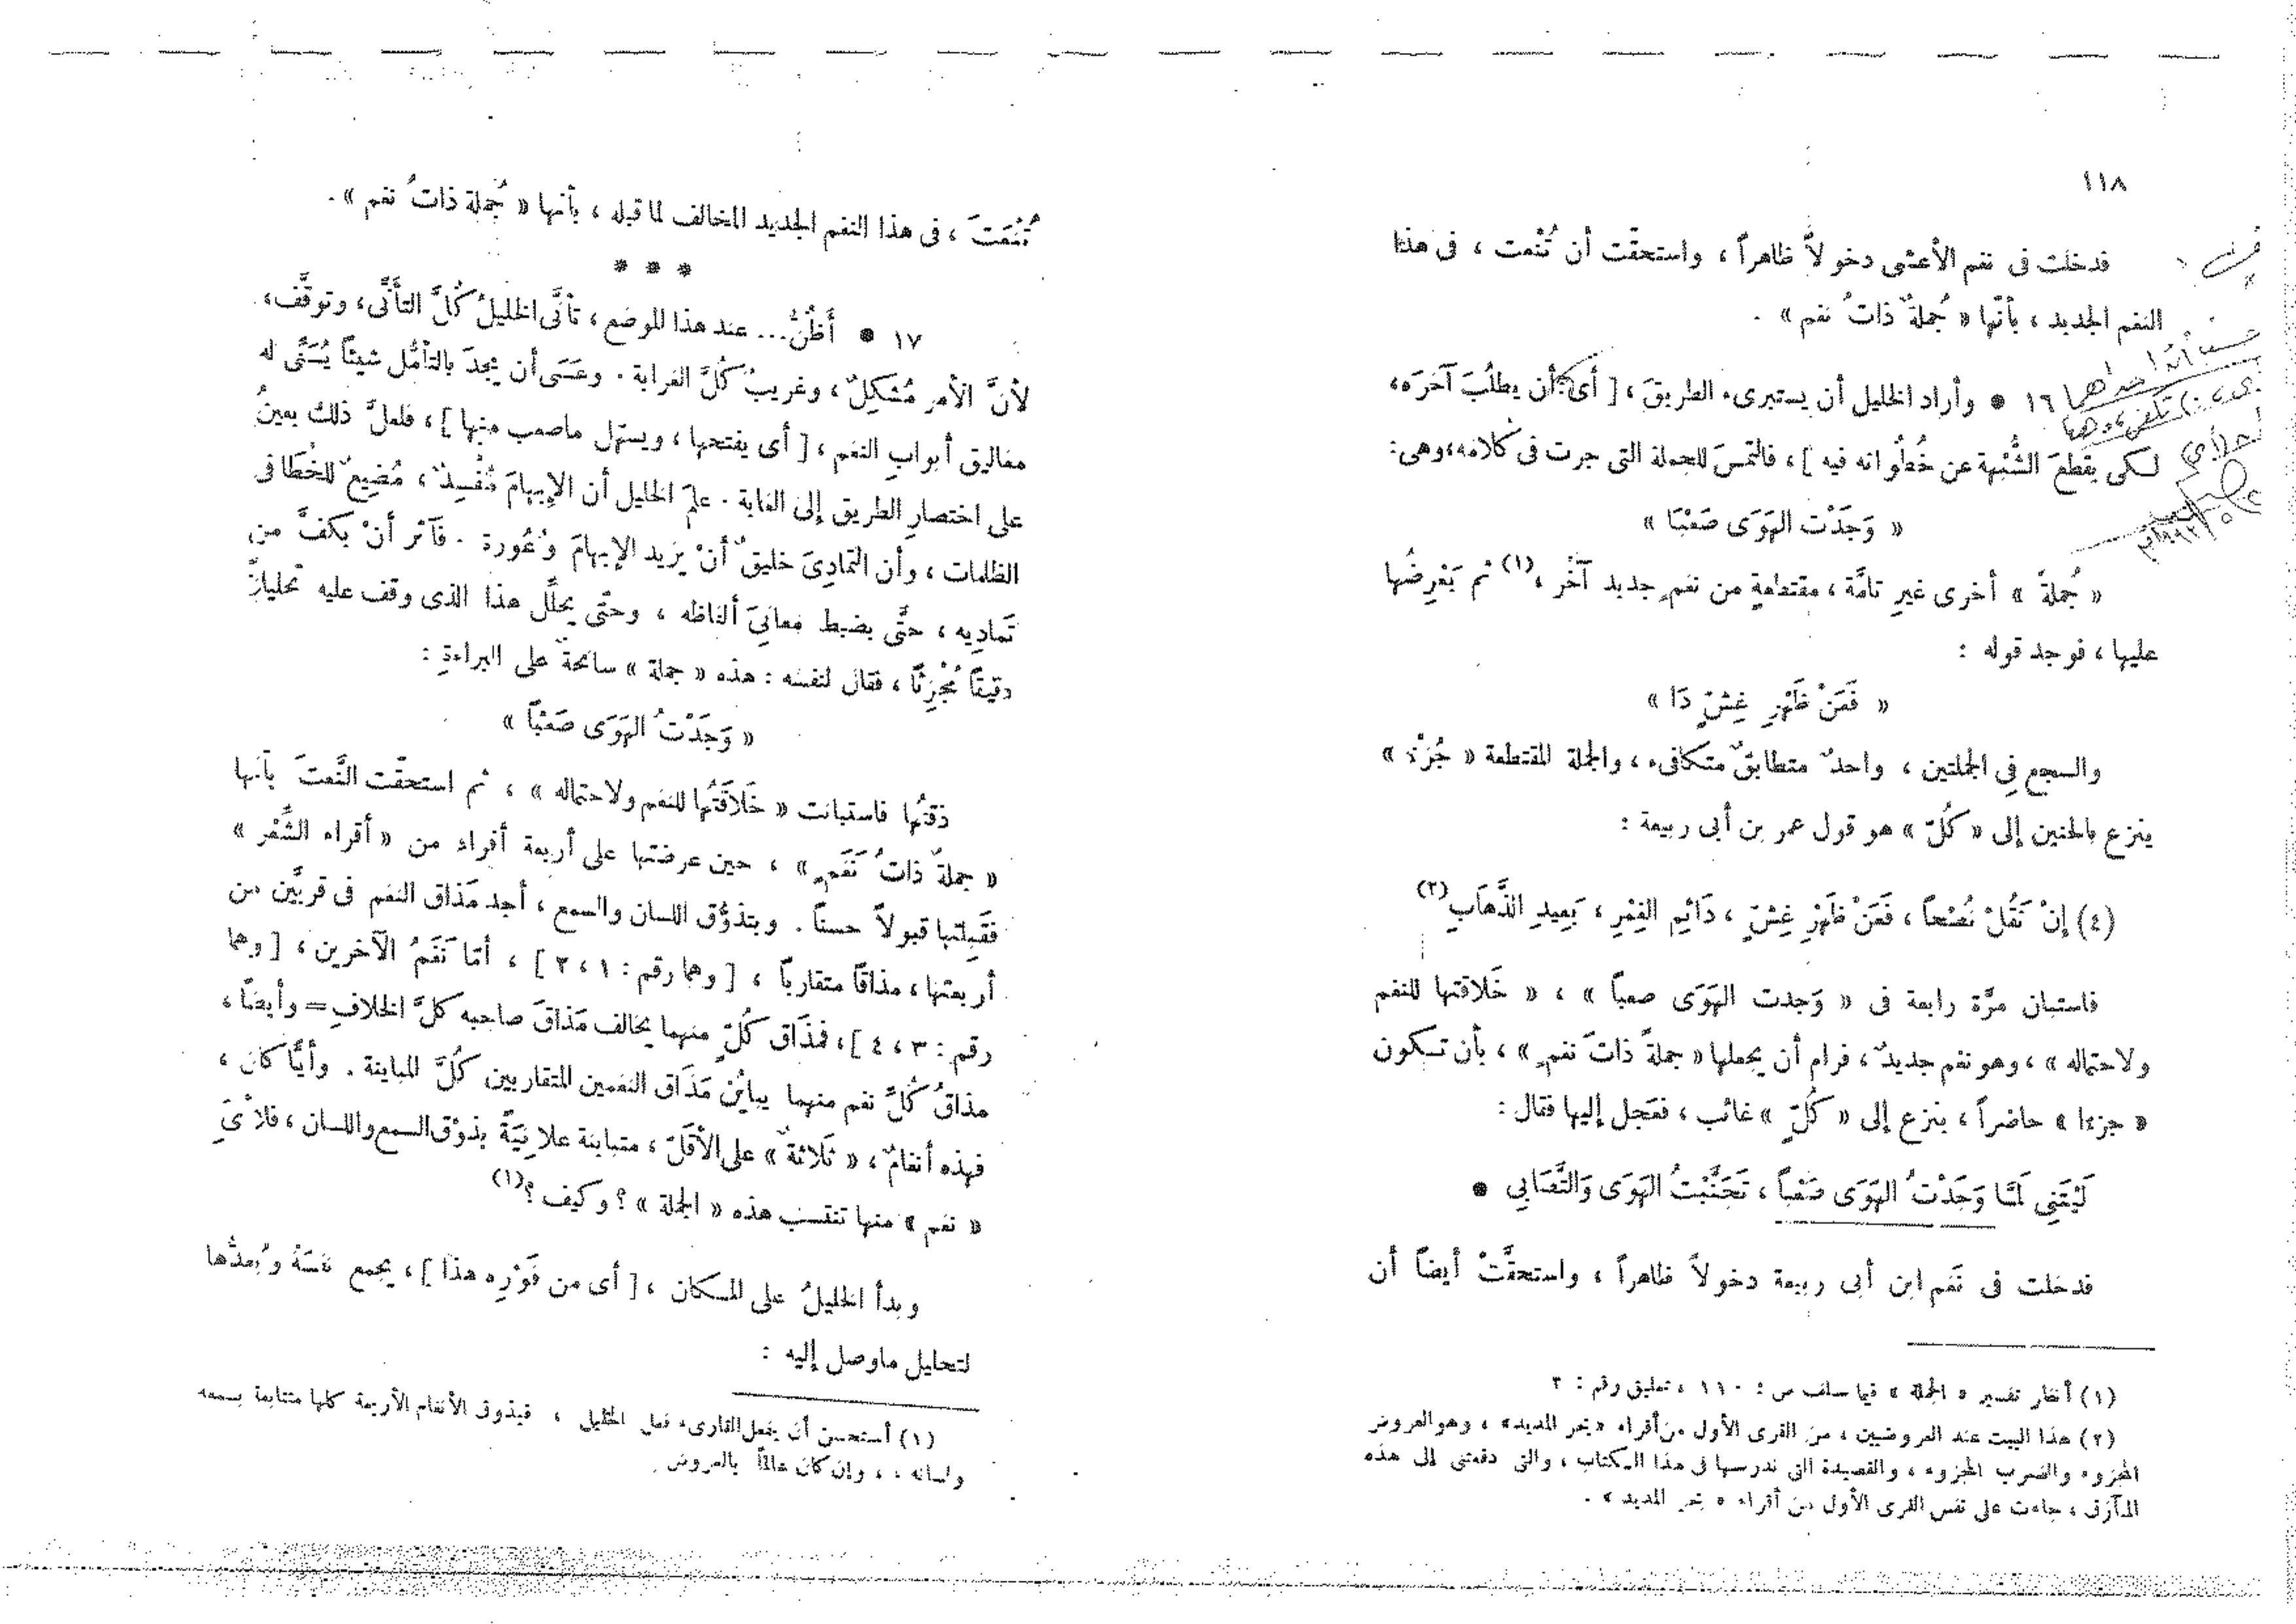 ١١٨
فدخلت فى نغم الأعشى دخولاً ظاهراً ، واستحقّت أن تُنْعت ، فى هذا
النغم الجديد ، بأنّها « جُملةٌ ذاتُ نغم » .
١٦ • وأراد الخليل أن يستبرىء الطريقَ ، [ أى أن يطلُبَ آخرَه ،
لكى يقطعَ الشُّبْهة عن خُطُواته فيه ] ، فالتمسَ للجملة التى جرت فى كلامه ، وهى :
« وَجَدْت الهَوَى صَعْبَا »
« جُملةً » أخرى غيرِ تامَّة ، مقتطعةٍ من نغمٍ جديد آخَر ،(١) ثم يَعْرِضُها
عليها ، فوجد قوله :
« فَعَنْ ظَهْرِ غِشّ دَا »
والسجع فِى الجملتين ، واحدٌ متطابقٌ متكافىء ، والجملة المقتطعة « جُزْءٌ »
ينزع بالحنين إلى « كُلّ » هو قول عمر بن أبى ربيعة :
(٤) إنْ تَقُلْ نُصْحاً ، فَعَنْ ظَهْرِ غِشّ ، دَائِمِ الغِمْرِ ، بَعِيدِ الذَّهَابِ(٢)
فاستبان مرَّة رابعة فى « وَجدت الهَوَى صعباً » ، « خَلاقتها للنغم
ولاحتماله » ، وهو نغم جديدٌ ، فرام أن يجعلها « جملةً ذاتَ نغمٍ » ، بأن تكون
« جزءا » حاضراً ، ينزع إلى « كُلّ » غائب ، فعَجل إليها فقال :
لَيْتَنِى لَمَّا وَجَدْتُ الهَوَى صَعْباً ، تَجَنَّبْتُ الهَوَى وَالتَّصَابِى •
فدخلت فى نَغَم ابن أبى ربيعة دخولاً ظاهراً ، واستحقَّتْ أيضاً أن
(١) أنظر تفسير « الجملة » فيما سلف ص : ١١٠ ، تعليق رقم : ٣
(٢) هذا البيت عند العروضيين ، من القرى الأول من أقراء « بحر المديد » ، وهو العروض
المجزوء والضرب المجزوء ، والقصيدة التى ندرسها فى هذا الكتاب ، والتى دفعتنى إلى هذه
المآزق ، جاءت على نفس القرى الأول من أقراء « بحر المديد » .
تُنْعَتَ ، فى هذا النغم الجديد المخالف لما قبله ، بأنها « جُملة ذاتُ نغم » .
* * *
١٧ • أَظُنُّ ... عند هذا الموضع ، تأنَّى الخليلُ كُلَّ التأَنِّى ، وتوقَّف ،
لأنَّ الأمر مُشكِلٌ ، وغريبٌ كُلَّ الغرابة . وعَسَى أن يجدَ بالتأمُّل شيئاً يُسَنِّى له
مغاليق أبوابِ النغم ، [ أى يفتحها ، ويستهل ماصعب منها ] ، فلعلَّ ذلك يعينُ
على اختصارِ الطريق إلى الغاية . علِمَ الخليل أن الإبهامَ مُفْسِدٌ ، مُضِيعٌ للخُطَا فى
الظلمات ، وأن التمادِىَ خليقٌ أنْ يزيد الإبهامَ وُعُورة . فآثر أنْ يكفَّ من
تَمادِيه ، حتَّى يضبط معانِىَ ألفاظه ، وحتَّى يحلِّل هذا الذى وقف عليه تحليلاً
دقيقاً مُجْزِئًا ، فقال لنفسه : هذه « جملة » سانحةٌ على البراءةِ :
« وَجَدْتُ الهَوَى صَعْبًا »
ذقتُها فاستبانت « خَلاَقَتُها للنغم ولاحتماله » ، ثم استحقّت النَّعتَ بأنها
« جملةٌ ذاتُ نَغَمٍ » ، حين عرضتها على أربعة أقراء من « أقراء الشِّعْر »
فقَبِلتها قبولاً حسناً . وبتذوُّق اللسان والسمع ، أجد مَذاق النغم فى قريَّين من
أربعتها ، مذاقًا متقارباً ، [ وهما رقم : ١ ، ٢ ] ، أمّا نَغَمُ الآخرين ، [ وهما
رقم : ٣ ، ٤ ] ، فمَذَاق كُلّ منهما يخالف مَذاقَ صاحبه كلَّ الخلافِ = وأيضاً ،
مذاقُ كُلّ نغم منهما يباينُ مَذَاق النغمين المتقاربين كُلَّ المباينة . وأيًّا كان ،
فهذه أنغامٌ ، « ثَلاثةٌ » على الأقَلّ ، متباينة علانِيَةً بذوْق السمع واللسان ، فلأىِّ
« نغم » منها تنتسب هذه « الجملة » ؟ وكيف ؟(١)
وبدأ الخليلُ على المكان ، [ أى من فَوْرِه هذا ] ، يجمع نفسَهُ ويُعِدُّها
لتحليل ماوصل إليه :
(١) أستحسن أن يفعل القارىء فعل الخليل ، فيذوق الأنغام الأربعة كلها متتابعة بسمعه
ولسانه ، ، وإن كان عالماً بالعروض .